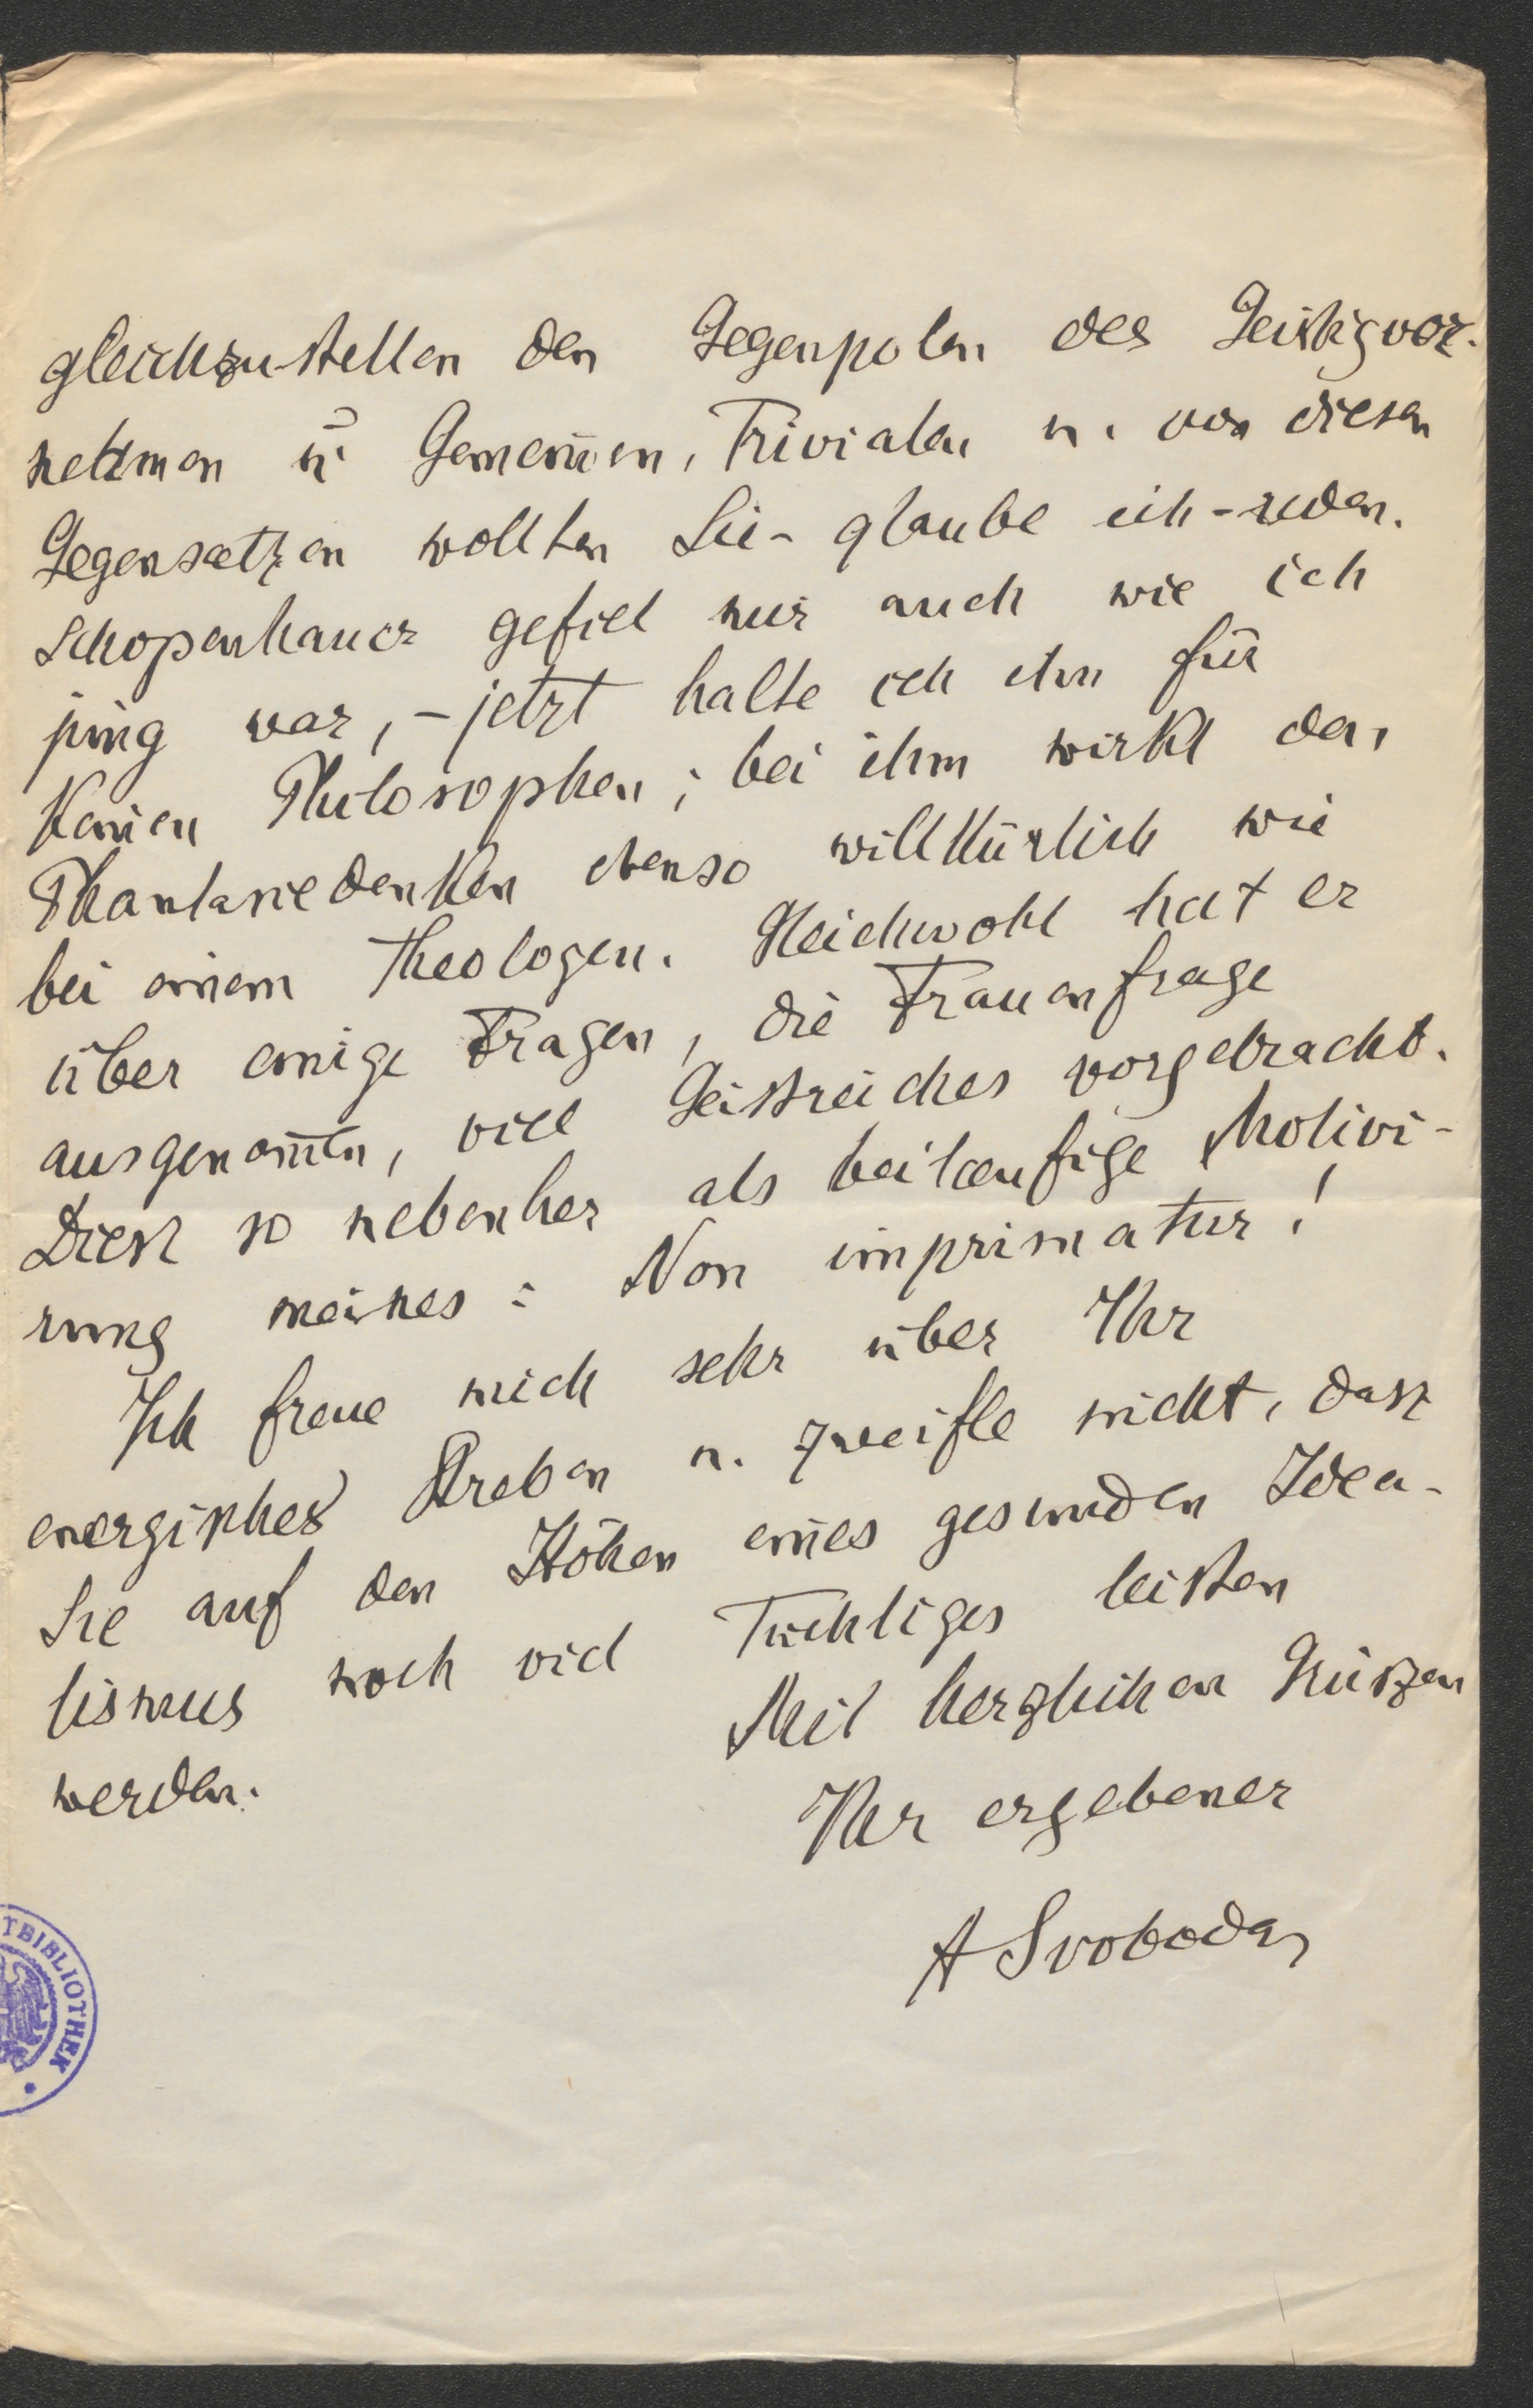 gleichzustellen den Gegenpolen des Geistigvor-
nehmen u. Gemeinen, Trivialen u. von diesen
Gegensætzen wollten Sie - glaube ich - reden.
Schopenhauer gefiel mir auch wie ich
jung war, - jetzt halte ich ihn für
keinen Philosophen; bei ihm wirkt das
Phantasiedenken ebenso willkürlich wie
bei einem Theologen. Gleichwohl hat er
über einige Fragen, die Frauenfrage
ausgenom̅en, viel Geistreiches vorgebracht.
Diesz so nebenher als beilæufige Motivi-
rung meines: Non imprimatur!
Ich freue mich sehr über Ihr
energisches Streben u. zweifle nicht, dasz
Sie auf den Höhen eines gesunden Idea-
lismus noch viel Tüchtiges leisten
werden.
Mit herzlichen Grüszen
Ihr ergebener
A Svoboda
TBIBLIOTHEK